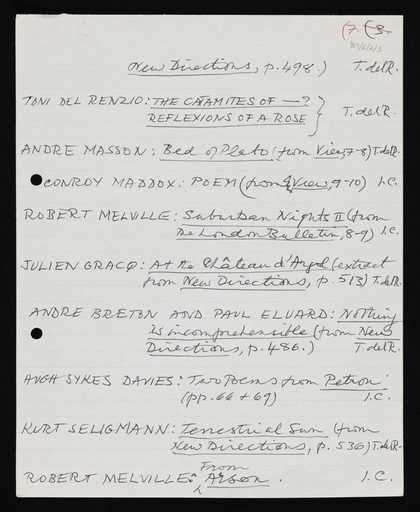 (7. (8.
New Directions, p.498.) T.delR.
TONI DEL RENZIO: THE CATAMITES OF —?
REFLEXIONS OF A ROSE } T.delR.
ANDRE MASSON: Bed of Plato (from View, 7-8) T.delR.
CONROY MADDOX: POEM (from View, 9-10) I.C.
ROBERT MELVILLE: Suburban Nights II (from
The London Bulletin, 8-9) I.C.
JULIEN GRACQ: At the Château d'Argol (extract
from New Directions, p. 513) T.delR.
ANDRE BRETON AND PAUL ELUARD: Nothing
Is incomprehensible (from New
Directions, p.486.) T.delR.
HUGH SYKES DAVIES: Two Poems from Petron
(pp. 66 + 69) I.C.
KURT SELIGMANN: Terrestrial Sun (from
New Directions, p. 536) T.delR.
From
ROBERT MELVILLE: Arson. I.C.